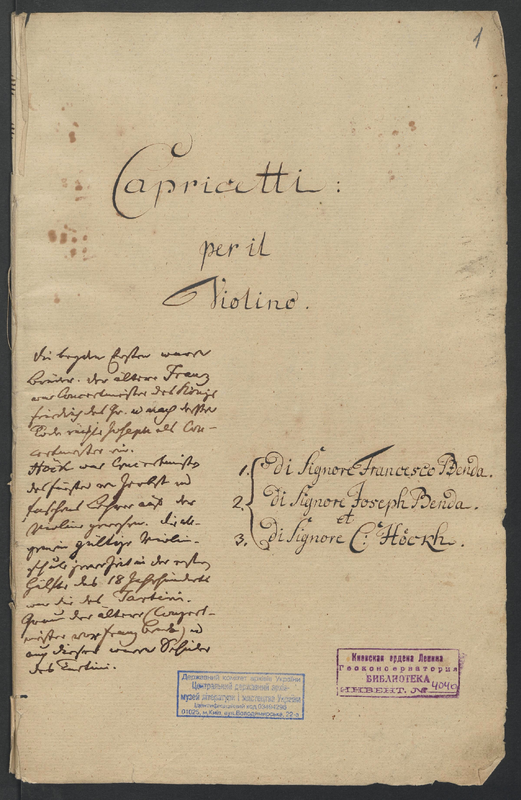 1
Capricetti:
per il
Violino.
die beyden Ersten waren
Brüder. der ältere Franz
war Concertmeister des Königs
Friedrich des Gr. u nach dessen
Tode rückte Joseph als Con-
certmeister ein.
Höck war Concertmeister
des Fürsten von Zerbst u
Faschens Lehrer auf der
Violine gewesen. Die
gültige Violin-
schule zu der Zeit in der ersten
Hälfte des 18 Jahrhunderts
war die des Tartini.
Graun der ältere (Concert-
meister vor Franz Benda) u
auch dieser waren Schüler
des Tartini.
1. di Signore Francesco Benda.
2. di Signore Joseph Benda.
et
3. di Signore C. Höckh.
Державний комітет архівів України
Центральний державний архів-
музей літератури і мистецтва України
Ідентифікаційний код
01025, м.Київ, вул.Володимирська, 22-а
Киевская ордена Ленина
Госконсерватория
БИБЛИОТЕКА
ИНВЕНТ. № 4040